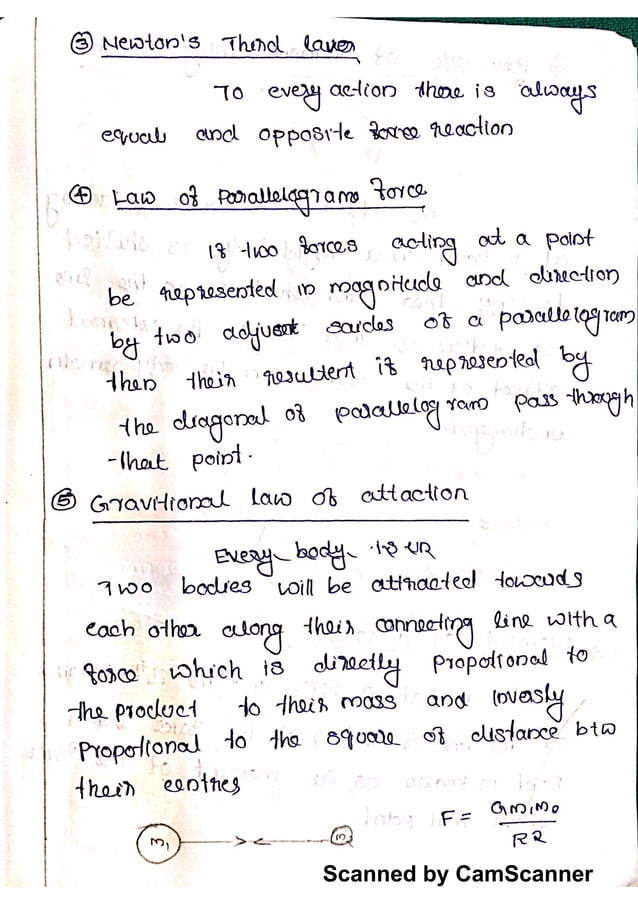 ③ Newton's Third laws
To every action there is always
equal and opposite force reaction
④ Law of Parallelogram Force
If two forces acting at a point
be represented in magnitude and direction
by two adjuset saides of a parallelogram
then their resultent if represented by
the diagonal of parallelogram pass through
that point.
⑤ Gravitional law of attaction
Every body is UR
Two bodies will be attracted towards
each other along their connecting line with a
force which is directly propotional to
the product to their mass and Invesly
propotional to the square of distance btw
their centres
F = Gm1m2
R2
m1
m2
Scanned by CamScanner